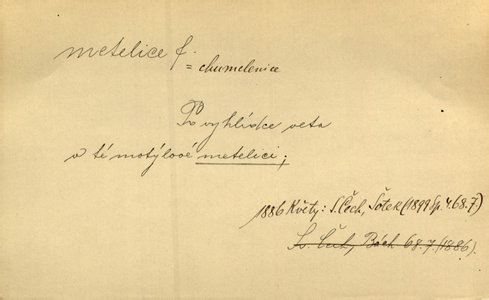 metelice f.
= chumelenice
K vyhlídce veta
v té motýlové metelici;
1886 Květy: S. Čech, Šotek (1899 Sp. 4.68.7.)
Sv. Čech, 68.7. (1886).